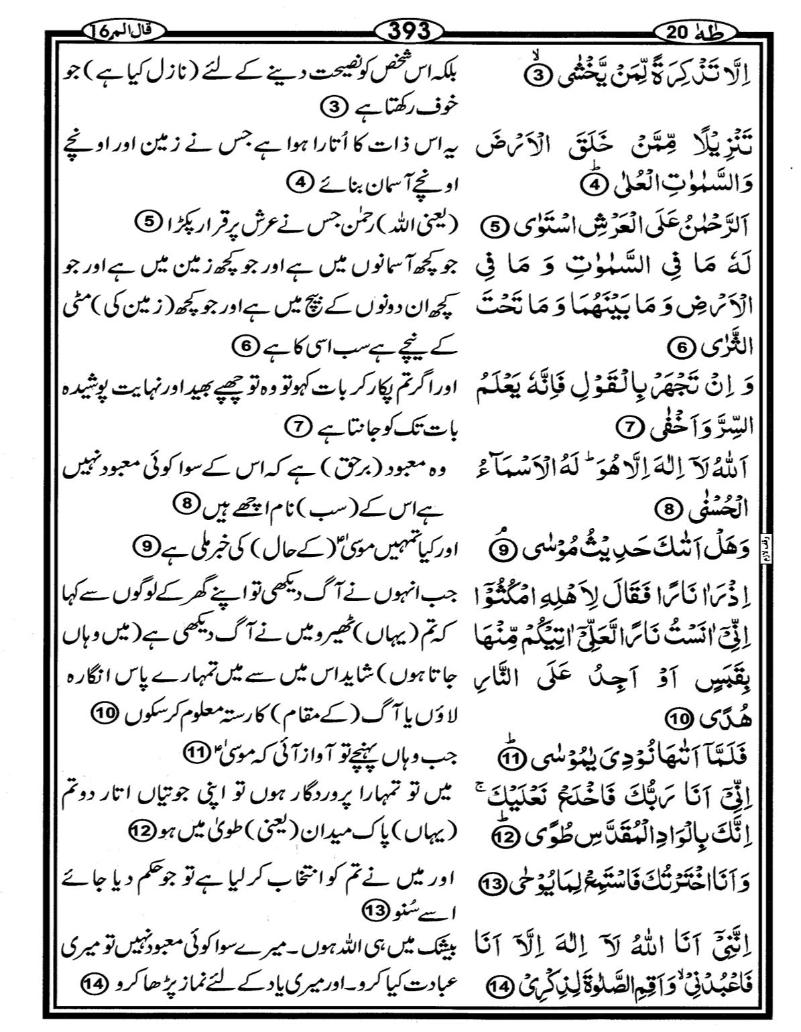 طٰهٰ 20
393
قال الم 16
اِلَّا تَذْكِرَةً لِّمَنْ يَّخْشٰى ۙ 3
تَنْزِيْلًا مِّمَّنْ خَلَقَ الْاَرْضَ
وَالسَّمٰوٰتِ الْعُلٰى ؕ 4
اَلرَّحْمٰنُ عَلَى الْعَرْشِ اسْتَوٰى 5
لَهٗ مَا فِى السَّمٰوٰتِ وَ مَا فِى
الْاَرْضِ وَ مَا بَيْنَهُمَا وَ مَا تَحْتَ
الثَّرٰى 6
وَ اِنْ تَجْهَرْ بِالْقَوْلِ فَاِنَّهٗ يَعْلَمُ
السِّرَّ وَ اَخْفٰى 7
اَللّٰهُ لَاۤ اِلٰهَ اِلَّا هُوَ ؕ لَهُ الْاَسْمَآءُ
الْحُسْنٰى 8
وَهَلْ اَتٰىكَ حَدِيْثُ مُوْسٰى ۘ 9
وقف لازم
اِذْ رَاٰ نَارًا فَقَالَ لِاَهْلِهِ امْكُثُوْۤا
اِنِّىْۤ اٰنَسْتُ نَارًا لَّعَلِّىْۤ اٰتِيْكُمْ مِّنْهَا
بِقَبَسٍ اَوْ اَجِدُ عَلَى النَّارِ
هُدًى 10
فَلَمَّاۤ اَتٰىهَا نُوْدِىَ يٰمُوْسٰى ؕ 11
اِنِّىْۤ اَنَا رَبُّكَ فَاخْلَعْ نَعْلَيْكَ ۚ
اِنَّكَ بِالْوَادِ الْمُقَدَّسِ طُوًى ؕ 12
وَ اَنَا اخْتَرْتُكَ فَاسْتَمِعْ لِمَا يُوْحٰى 13
اِنَّنِىْۤ اَنَا اللّٰهُ لَاۤ اِلٰهَ اِلَّاۤ اَنَا
فَاعْبُدْنِىْ ۙ وَ اَقِمِ الصَّلٰوةَ لِذِكْرِىْ 14
بلکہ اس شخص کو نصیحت دینے کے لئے (نازل کیا ہے) جو
خوف رکھتا ہے 3
یہ اس ذات کا اُتارا ہوا ہے جس نے زمین اور اونچے
اونچے آسمان بنائے 4
(یعنی اللہ) رحمٰن جس نے عرش پر قرار پکڑا 5
جو کچھ آسمانوں میں ہے اور جو کچھ زمین میں ہے اور جو
کچھ ان دونوں کے بیچ میں ہے اور جو کچھ (زمین کی) مٹی
کے نیچے ہے سب اسی کا ہے 6
اور اگر تم پکار کر بات کہو تو وہ تو چھپے بھید اور نہایت پوشیدہ
بات تک کو جانتا ہے 7
وہ معبود (برحق) ہے کہ اس کے سوا کوئی معبود نہیں
ہے اس کے (سب) نام اچھے ہیں 8
اور کیا تمہیں موسیٰؑ (کے حال) کی خبر ملی ہے 9
جب انہوں نے آگ دیکھی تو اپنے گھر کے لوگوں سے کہا
کہ تم (یہاں) ٹھیرو میں نے آگ دیکھی ہے (میں وہاں
جاتا ہوں) شاید اس میں سے میں تمہارے پاس انگارہ
لاؤں یا آگ (کے مقام) کا رستہ معلوم کرسکوں 10
جب وہاں پہنچے تو آواز آئی کہ موسیٰؑ 11
میں تو تمہارا پروردگار ہوں تو اپنی جوتیاں اتار دو تم
(یہاں) پاک میدان (یعنی) طویٰ میں ہو 12
اور میں نے تم کو انتخاب کر لیا ہے تو جو حکم دیا جائے
اسے سُنو 13
بیشک میں ہی اللہ ہوں۔ میرے سوا کوئی معبود نہیں تو میری
عبادت کیا کرو۔ اور میری یاد کے لئے نماز پڑھا کرو 14